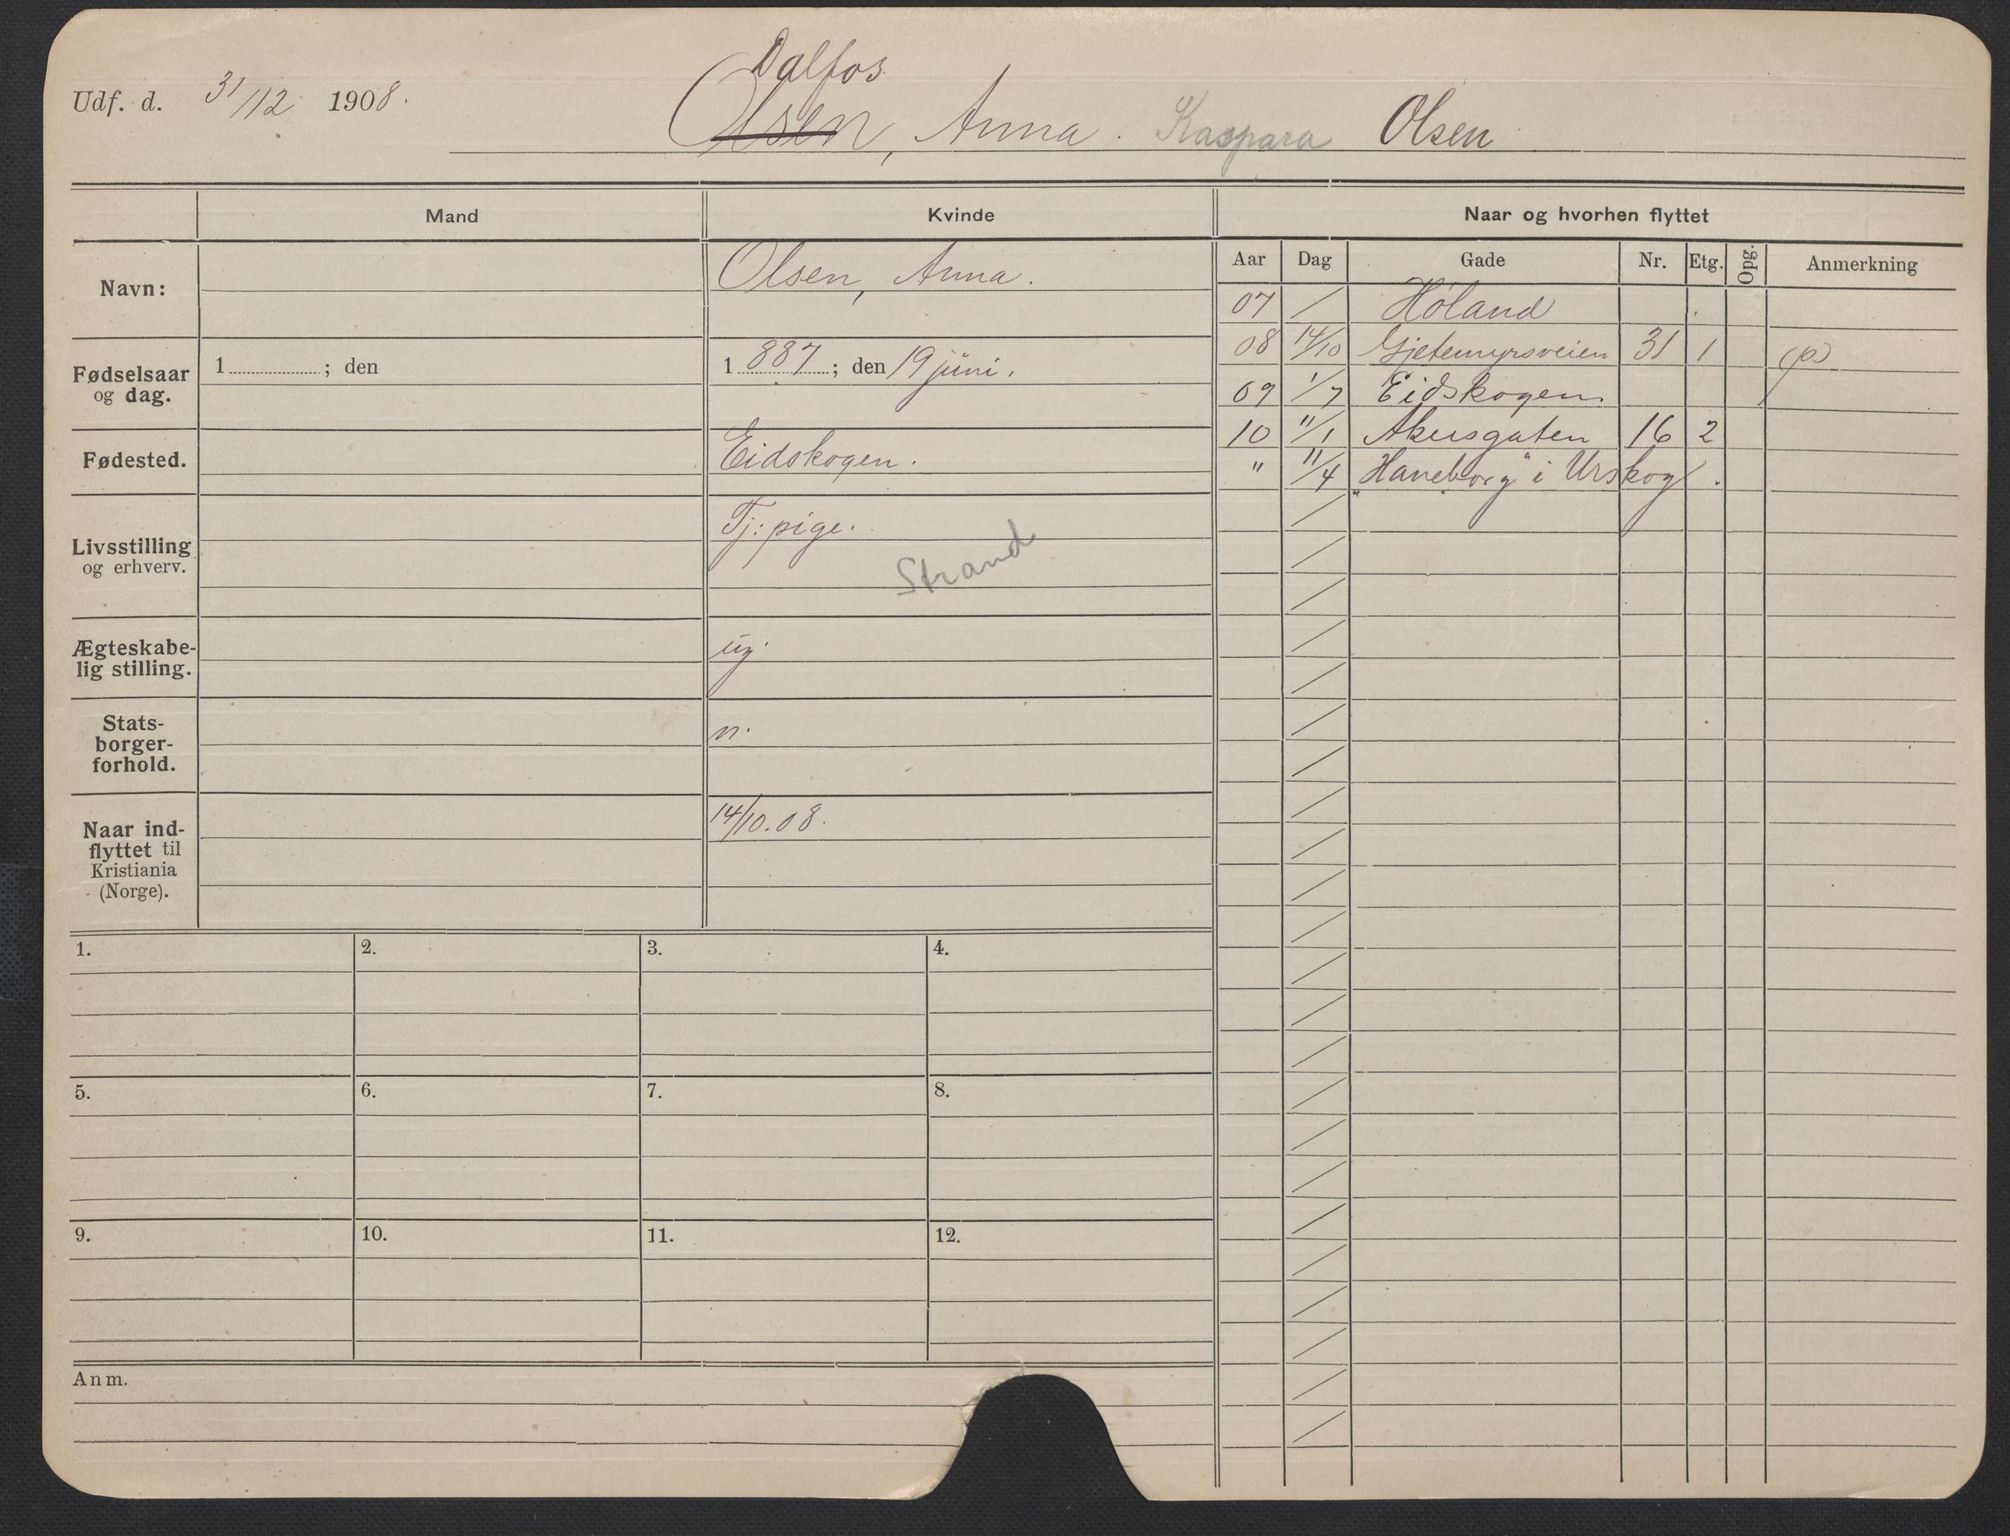 Dalfos
Udf. d. 31/12 1908.
Olsen, Anna. Kaspara Olsen
Mand Kvinde Naar og hvorhen flyttet
Aar Dag Gade Nr. Etg. Opg. Anmerkning
Navn: Olsen, Anna.
Fødselsaar og dag. 1 ; den 1887; den 19 juni.
Fødested. Eidskogen.
Livsstilling og erhverv. Tj: pige.
Strand
Ægteskabe-
lig stilling. ug.
Stats-
borger-
forhold. n.
Naar ind-
flyttet til
Kristiania
(Norge). 14/10.08.
07 / Høland
08 14/10 Gjetemyrsveien 31 1 (p)
09 1/7 Eidskogen
10 11/1 Akersgaten 16 2
" 11/4 "Haneborg" i Urskog.
1. 2. 3. 4.
5. 6. 7. 8.
9. 10. 11. 12.
Anm.